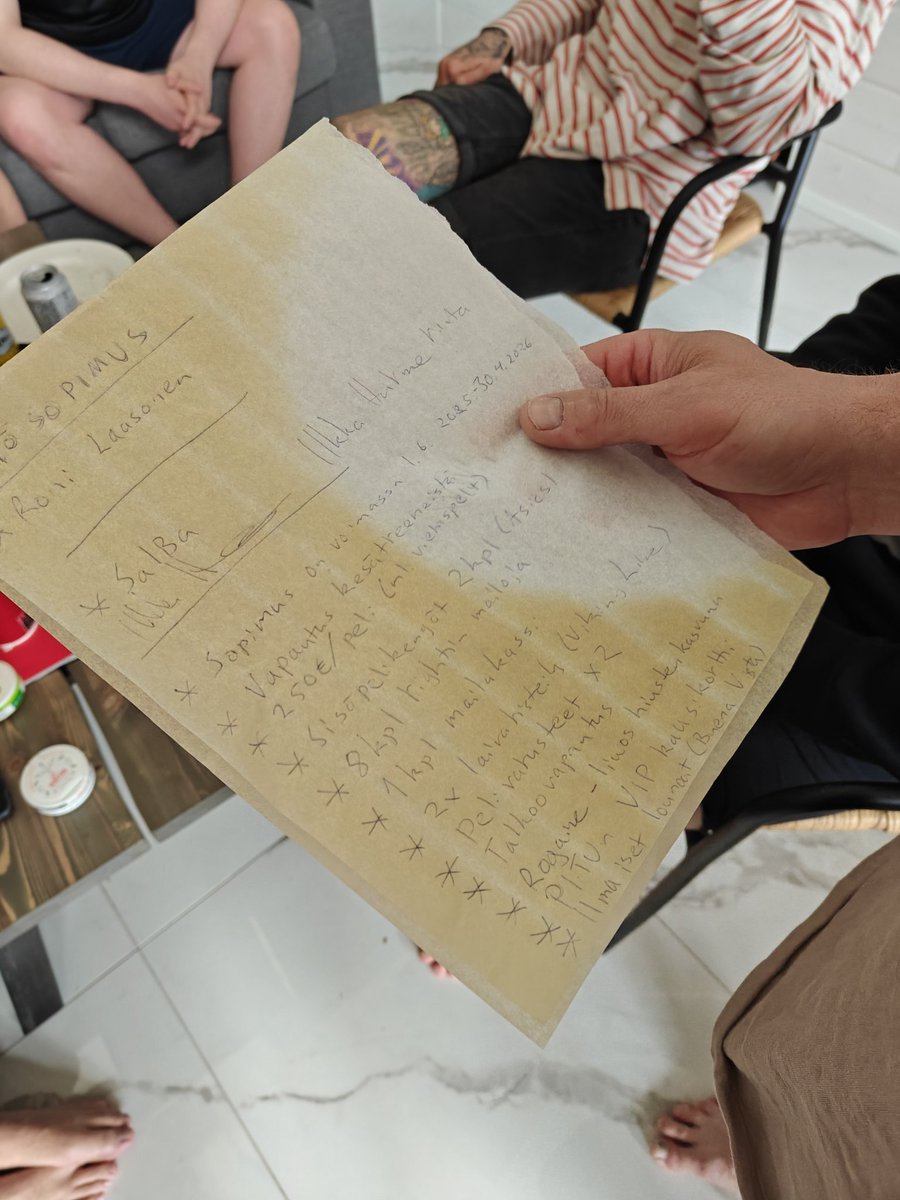 SOPIMUS
Roni Laasonen
* SalBa
Ilkka
* Sopimus on voimassa 1.6.2025-30.4.2026
* Vapautus kesätreeneistä
* 250€/peli (ml vieraspelit)
* Sisäpelikengät 2kpl (Asics)
* 8kpl tightin mailoja
* 1kpl mailakassi
* 2x laivaristeily (Viking Line)
* Peliratusteet x2
* Talkoovapautus
* Rogaine-liuos hiustenkasvuun
* PITUn VIP kausikortti
* Ilmaiset lounaat (Buena Vista)